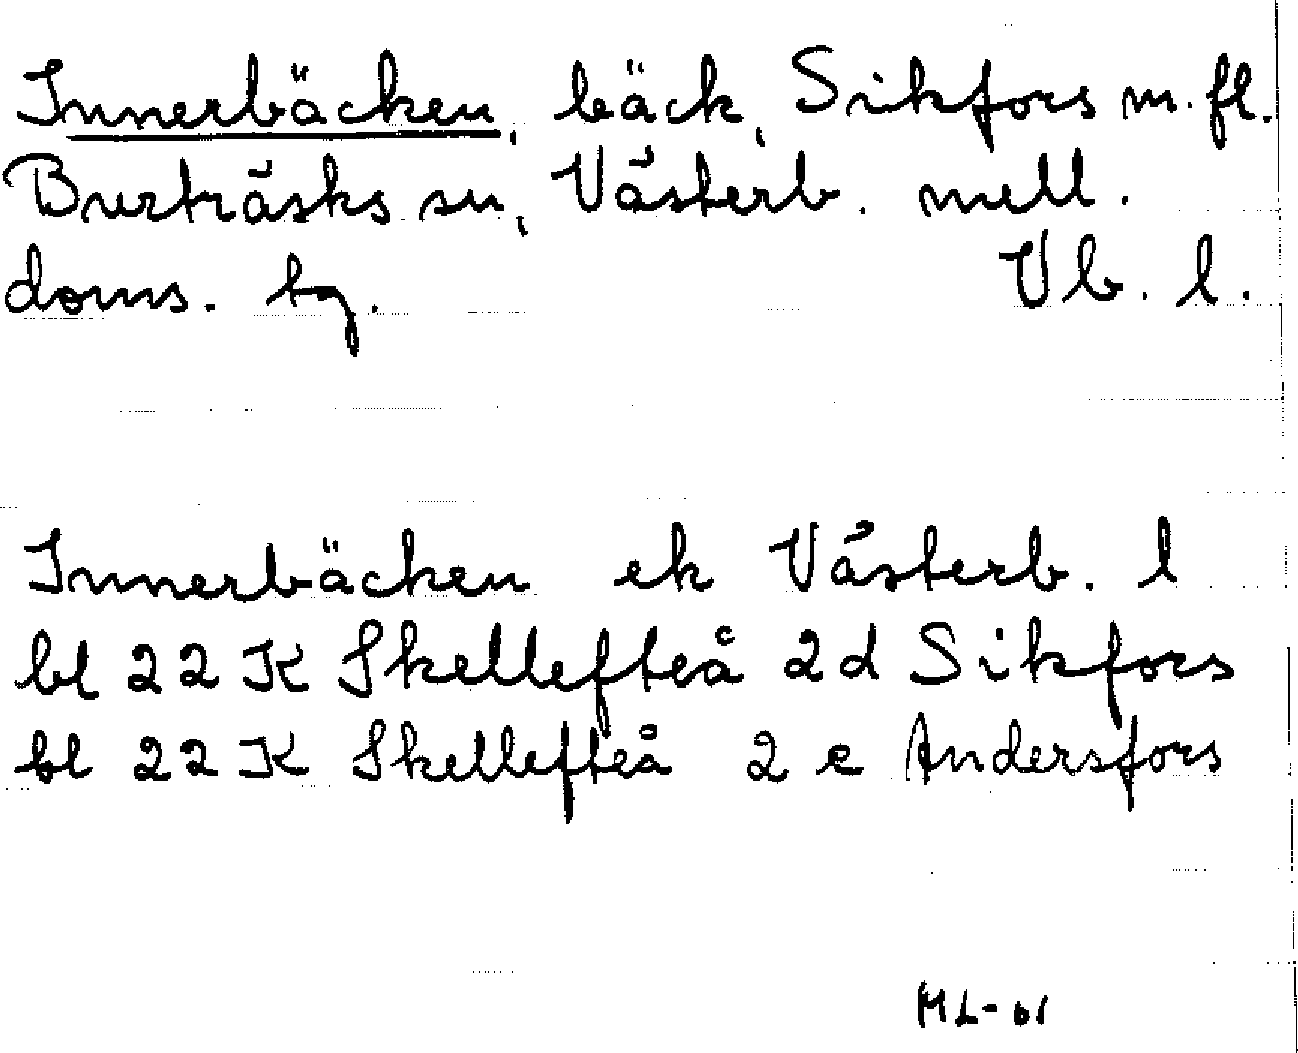 Innerbäcken, bäck, Sikfors m. fl.
Burträsks sn, Västerb. mell.
doms. tg. Vb. l.
Innerbäcken ek Västerb. l
bl 22 K Skellefteå 2d Sikfors
bl 22 K Skellefteå 2 e Andersfors
ML-61